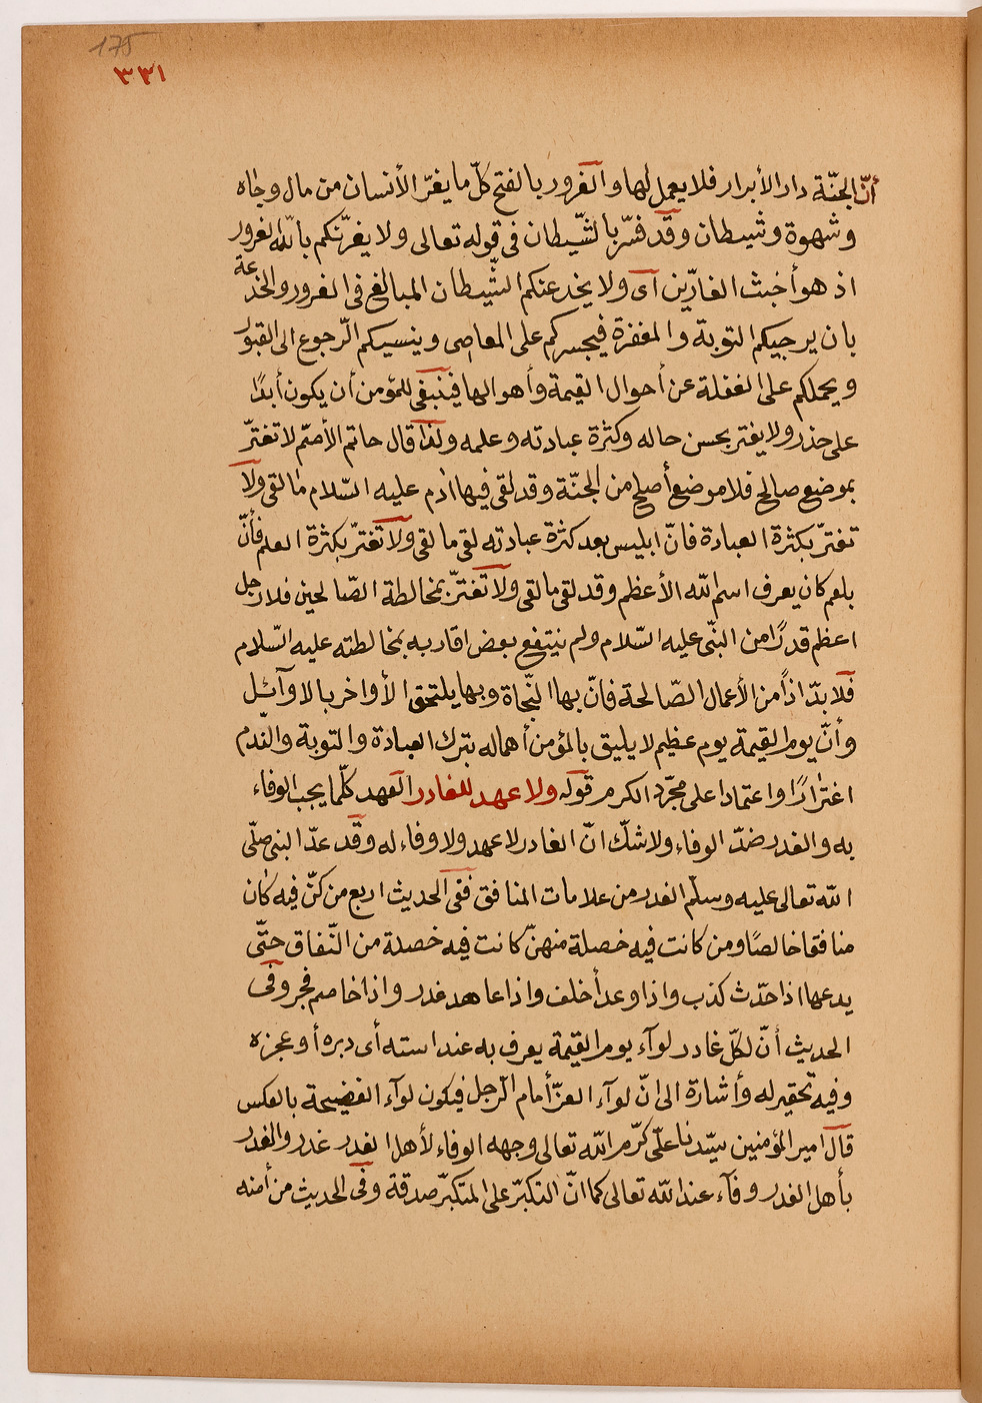 175
٣٣١
أنّ الجنّة دار الأبرار فلا يعمل لها والغرور بالفتح كلّ ما يغرّ الأنسان من مال وجاه
وشهوة وشيطان وقد فسّر بالشّيطان في قوله تعالى ولا يغرّنكم بالله الغرور
اذ هو أخبث الغارّين أى ولا يخدعنكم الشّيطان المبالغ في الغرور والخدعة
بان يرجيكم التوبة والمغفرة فيجسركم على المعاصى وينسيكم الرّجوع الى القبور
ويحملكم على الغفلة عن أحوال القيمة وأهوالها فينبغى للمؤمن أن يكون أبدًا
على حذر ولا يغتر بحسن حاله وكثرة عبادته وعلمه ولذا قال حاتم الأصمّ لا تغترّ
بموضع صالح فلا موضع أصلح من الجنّة وقد لقى فيها ادم عليه السّلام ما لقى ولا
تغترّ بكثرة العبادة فانّ ابليس بعد كثرة عبادته لقى ما لقى ولا تغترّ بكثرة العلم فأنّ
بلعم كان يعرف اسم الله الأعظم وقد لقى ما لقى ولا تغترّ بمخالطة الصّالحين فلا رجل
اعظم قدرًا من النبّى عليه السّلام ولم ينتفع بعض اقاربه بمخالطته عليه السّلام
فلا بدّ اذاً من الأعمال الصّالحة فانّ بها النّجاة وبها يلتحق الأواخر بالاوآئل
وأنّ يوم القيمة يوم عظيم لا يليق بالمؤمن أهماله بترك العبادة والتوبة والنّدم
اغترارًا واعتمادا على مجرّد الكرم قوله ولا عهد للغادر العهد كلّما يجب الوفاء
به والغدر ضدّ الوفاء ولا شكّ انّ الغادر لا عهد ولا وفاء له وقد عدّ النبى صلّى
الله تعالى عليه وسلّم الغدر من علامات المنافق ففى الحديث اربع من كنّ فيه كان
منافقا خالصًا ومن كانت فيه خصلة منهنّ كانت فيه خصلة من النّفاق حتّى
يدعها اذا حدّث كذب واذا وعد أخلف واذا عاهد غدر واذا خاصم فجر وفى
الحديث أنّ لكلّ غادر لوآء يوم القيمة يعرف به عند استه أى دبره أو عجزه
وفيه تحقير له وأشارة الى انّ لوآء العزّ أمام الرّجل فيكون لوآء الفضيحة بالعكس
قال امير المؤمنين سيّدنا علّى كرّم الله تعالى وجهه الوفاء لأهل الغدر غدر والغدر
بأهل الغدر وفآء عند الله تعالى كما انّ التكبرّ على المتكبرّ صدقة وفى الحديث من أمنه